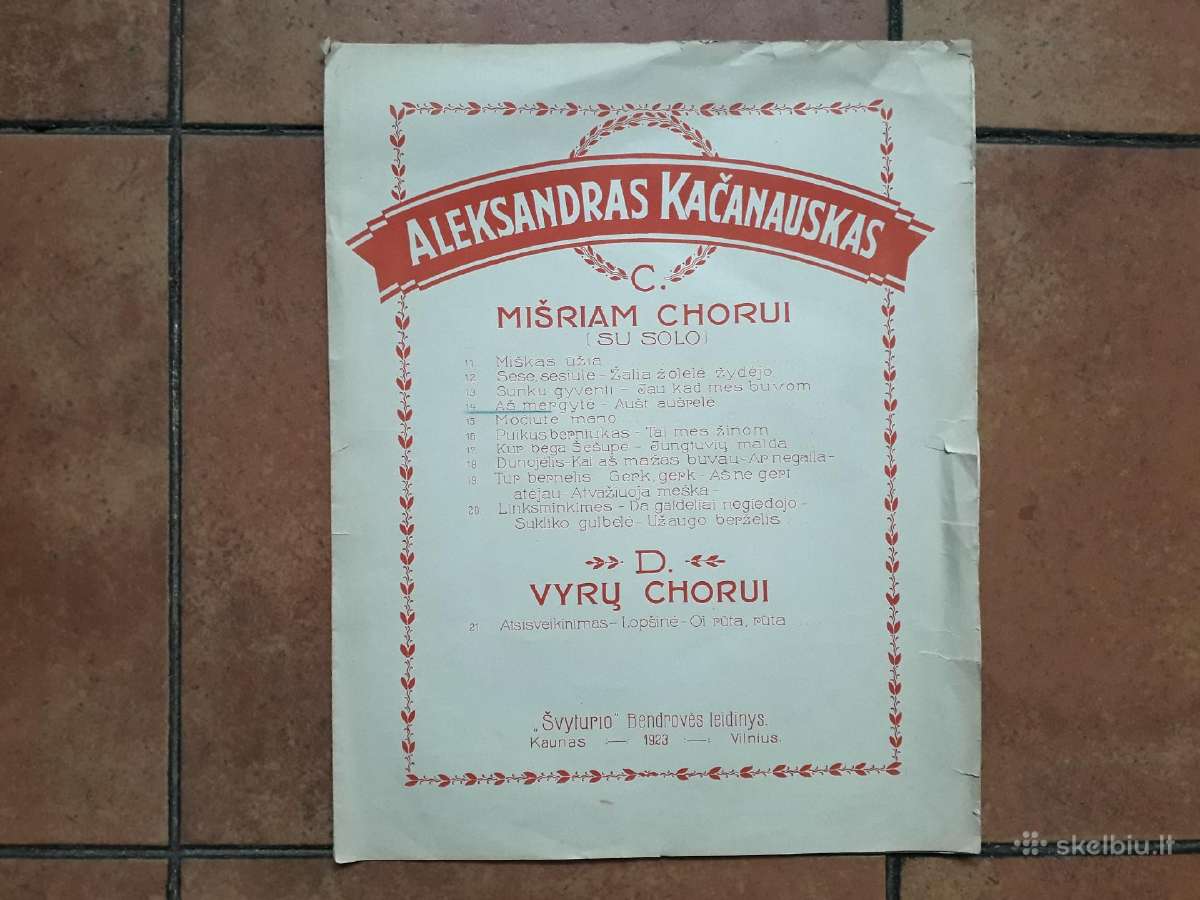 ALEKSANDRAS KAČANAUSKAS
C.
MIŠRIAM CHORUI
(SU SOLO)
11. Miškas ūžia
12. Sese, sesiulė - Žalia žolelė žydėjo
13. Sunku gyventi - Jau kad mes buvom
14. Aš mergytė - Aušt aušrelė
15. Močiutė mano
16. Puikus berniukas - Tai mes žinom
17. Kur bėga Šešupė - Jungtuvių malda
18. Dunojėlis - Kai aš mažas buvau - Ar negaila -
19. Tur bernelis - Gerk, gerk - Aš ne gert
atėjau - Atvažiuoja meška -
20. Linksminkimės - Da gaideliai negiedojo -
Sukliko gulbelė - Užaugo berželis
D.
VYRŲ CHORUI
21. Atsisveikinimas - Lopšinė - Oi rūta, rūta
„Švyturio" Bendrovės leidinys.
Kaunas — 1923 — Vilnius.
skelbiu.lt